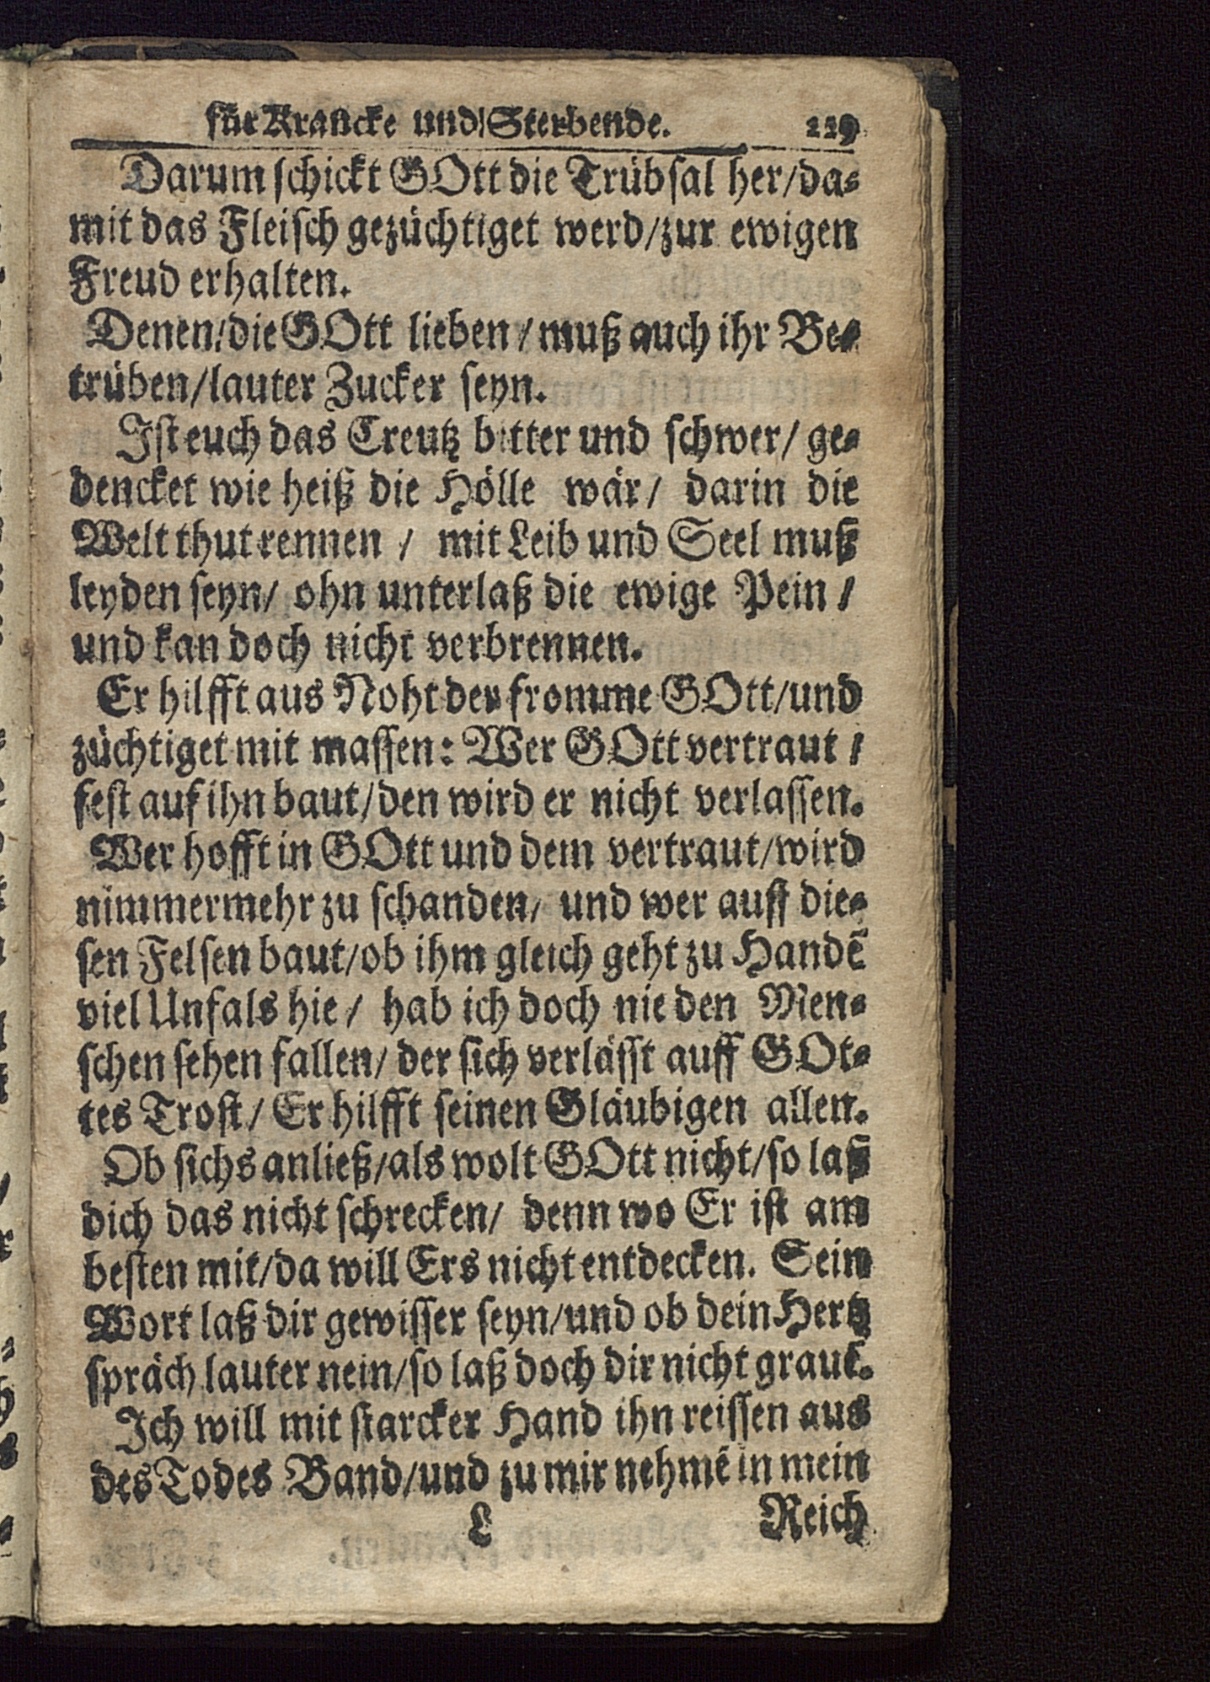 für Krancke und Sterbende. 119
Darum schickt GOtt die Trübsal her/da-
mit das Fleisch gezüchtiget werd/zur ewigen
Freud erhalten.
Denen/die GOtt lieben/muß auch ihr Be-
trüben/lauter Zucker seyn.
Ist euch das Creutz bitter und schwer/ ge-
dencket wie heiß die Hölle wär/ darin die
Welt thut rennen / mit Leib und Seel muß
leyden seyn/ ohn unterlaß die ewige Pein/
und kan doch nicht verbrennen.
Er hilfft aus Noht der fromme GOtt/und
züchtiget mit massen: Wer GOtt vertraut /
fest auf ihn baut/den wird er nicht verlassen.
Wer hofft in GOtt und dem vertraut/wird
nimmermehr zu schanden/ und wer auff die-
sen Felsen baut/ob ihm gleich geht zu Handẽ
viel Unfals hie/ hab ich doch nie den Men-
schen sehen fallen/ der sich verlässt auff GOt-
tes Trost/ Er hilfft seinen Gläubigen allen.
Ob sichs anließ/als wolt GOtt nicht/so laß
dich das nicht schrecken/ denn wo Er ist am
besten mit/da will Ers nicht entdecken. Sein
Wort laß dir gewisser seyn/und ob dein Hertz
spräch lauter nein/so laß doch dir nicht graue.
Ich will mit starcker Hand ihn reissen aus
des Todes Band/und zu mir nehmẽ in mein
L Reich